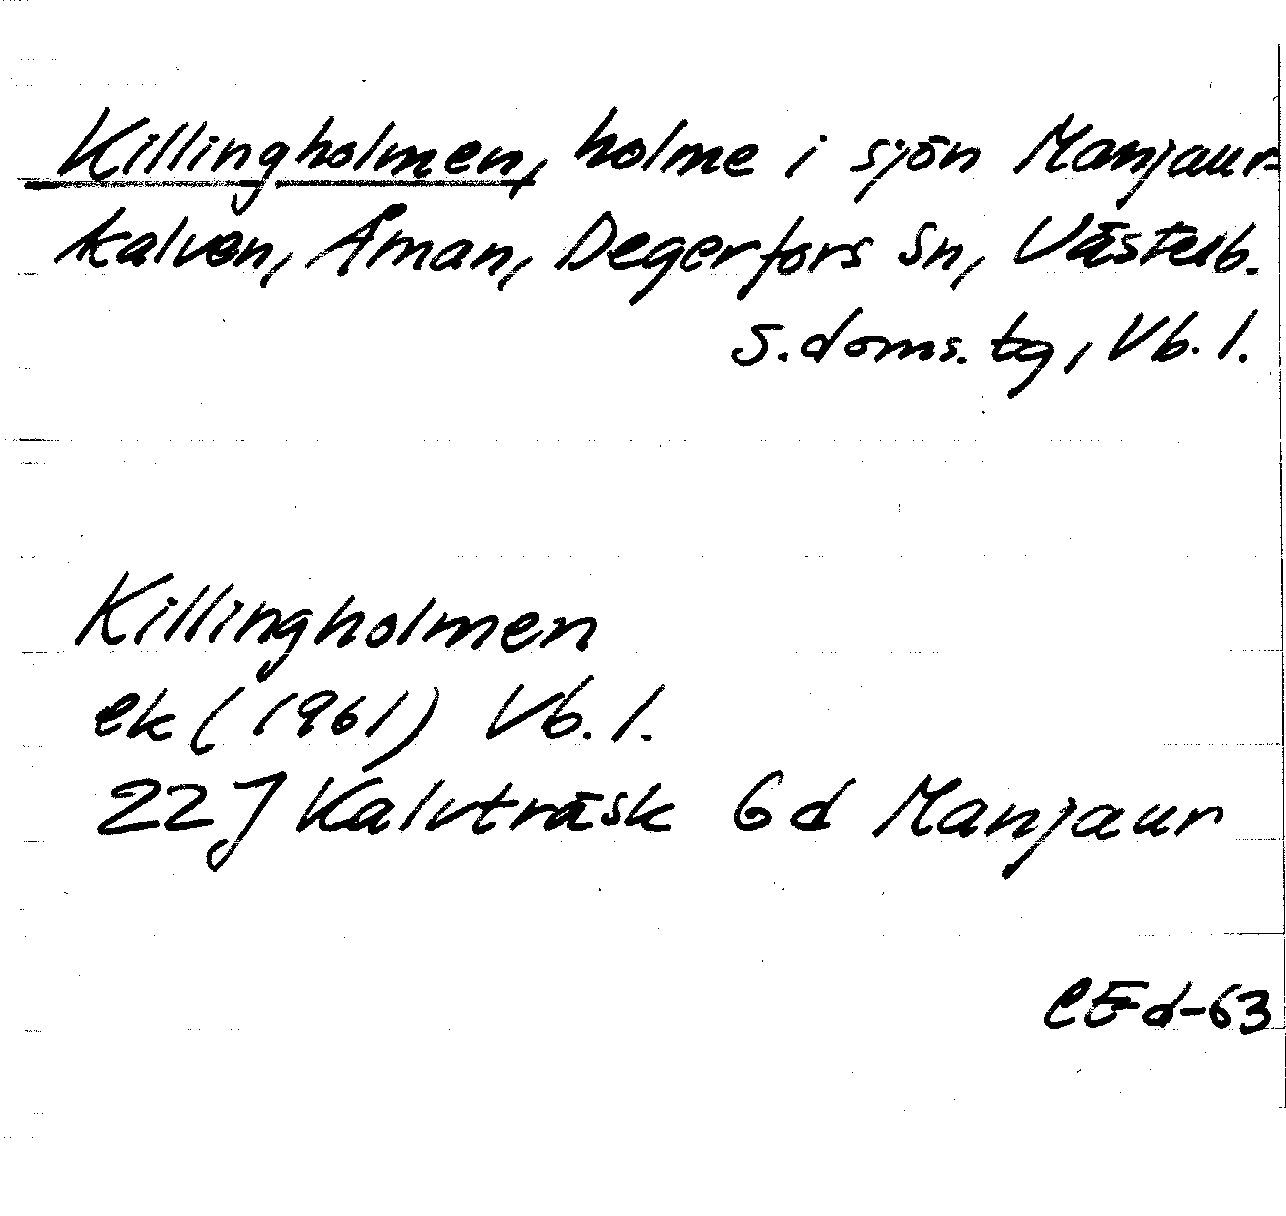 Killingholmen, holme i sjön Manjaur-
kalven, Åman, Degerfors sn, Västerb.
s. doms. tg, Vb. l.
Killingholmen
ek (1961) Vb. l.
22 J Kalvträsk 6 d Manjaur
CEd-63